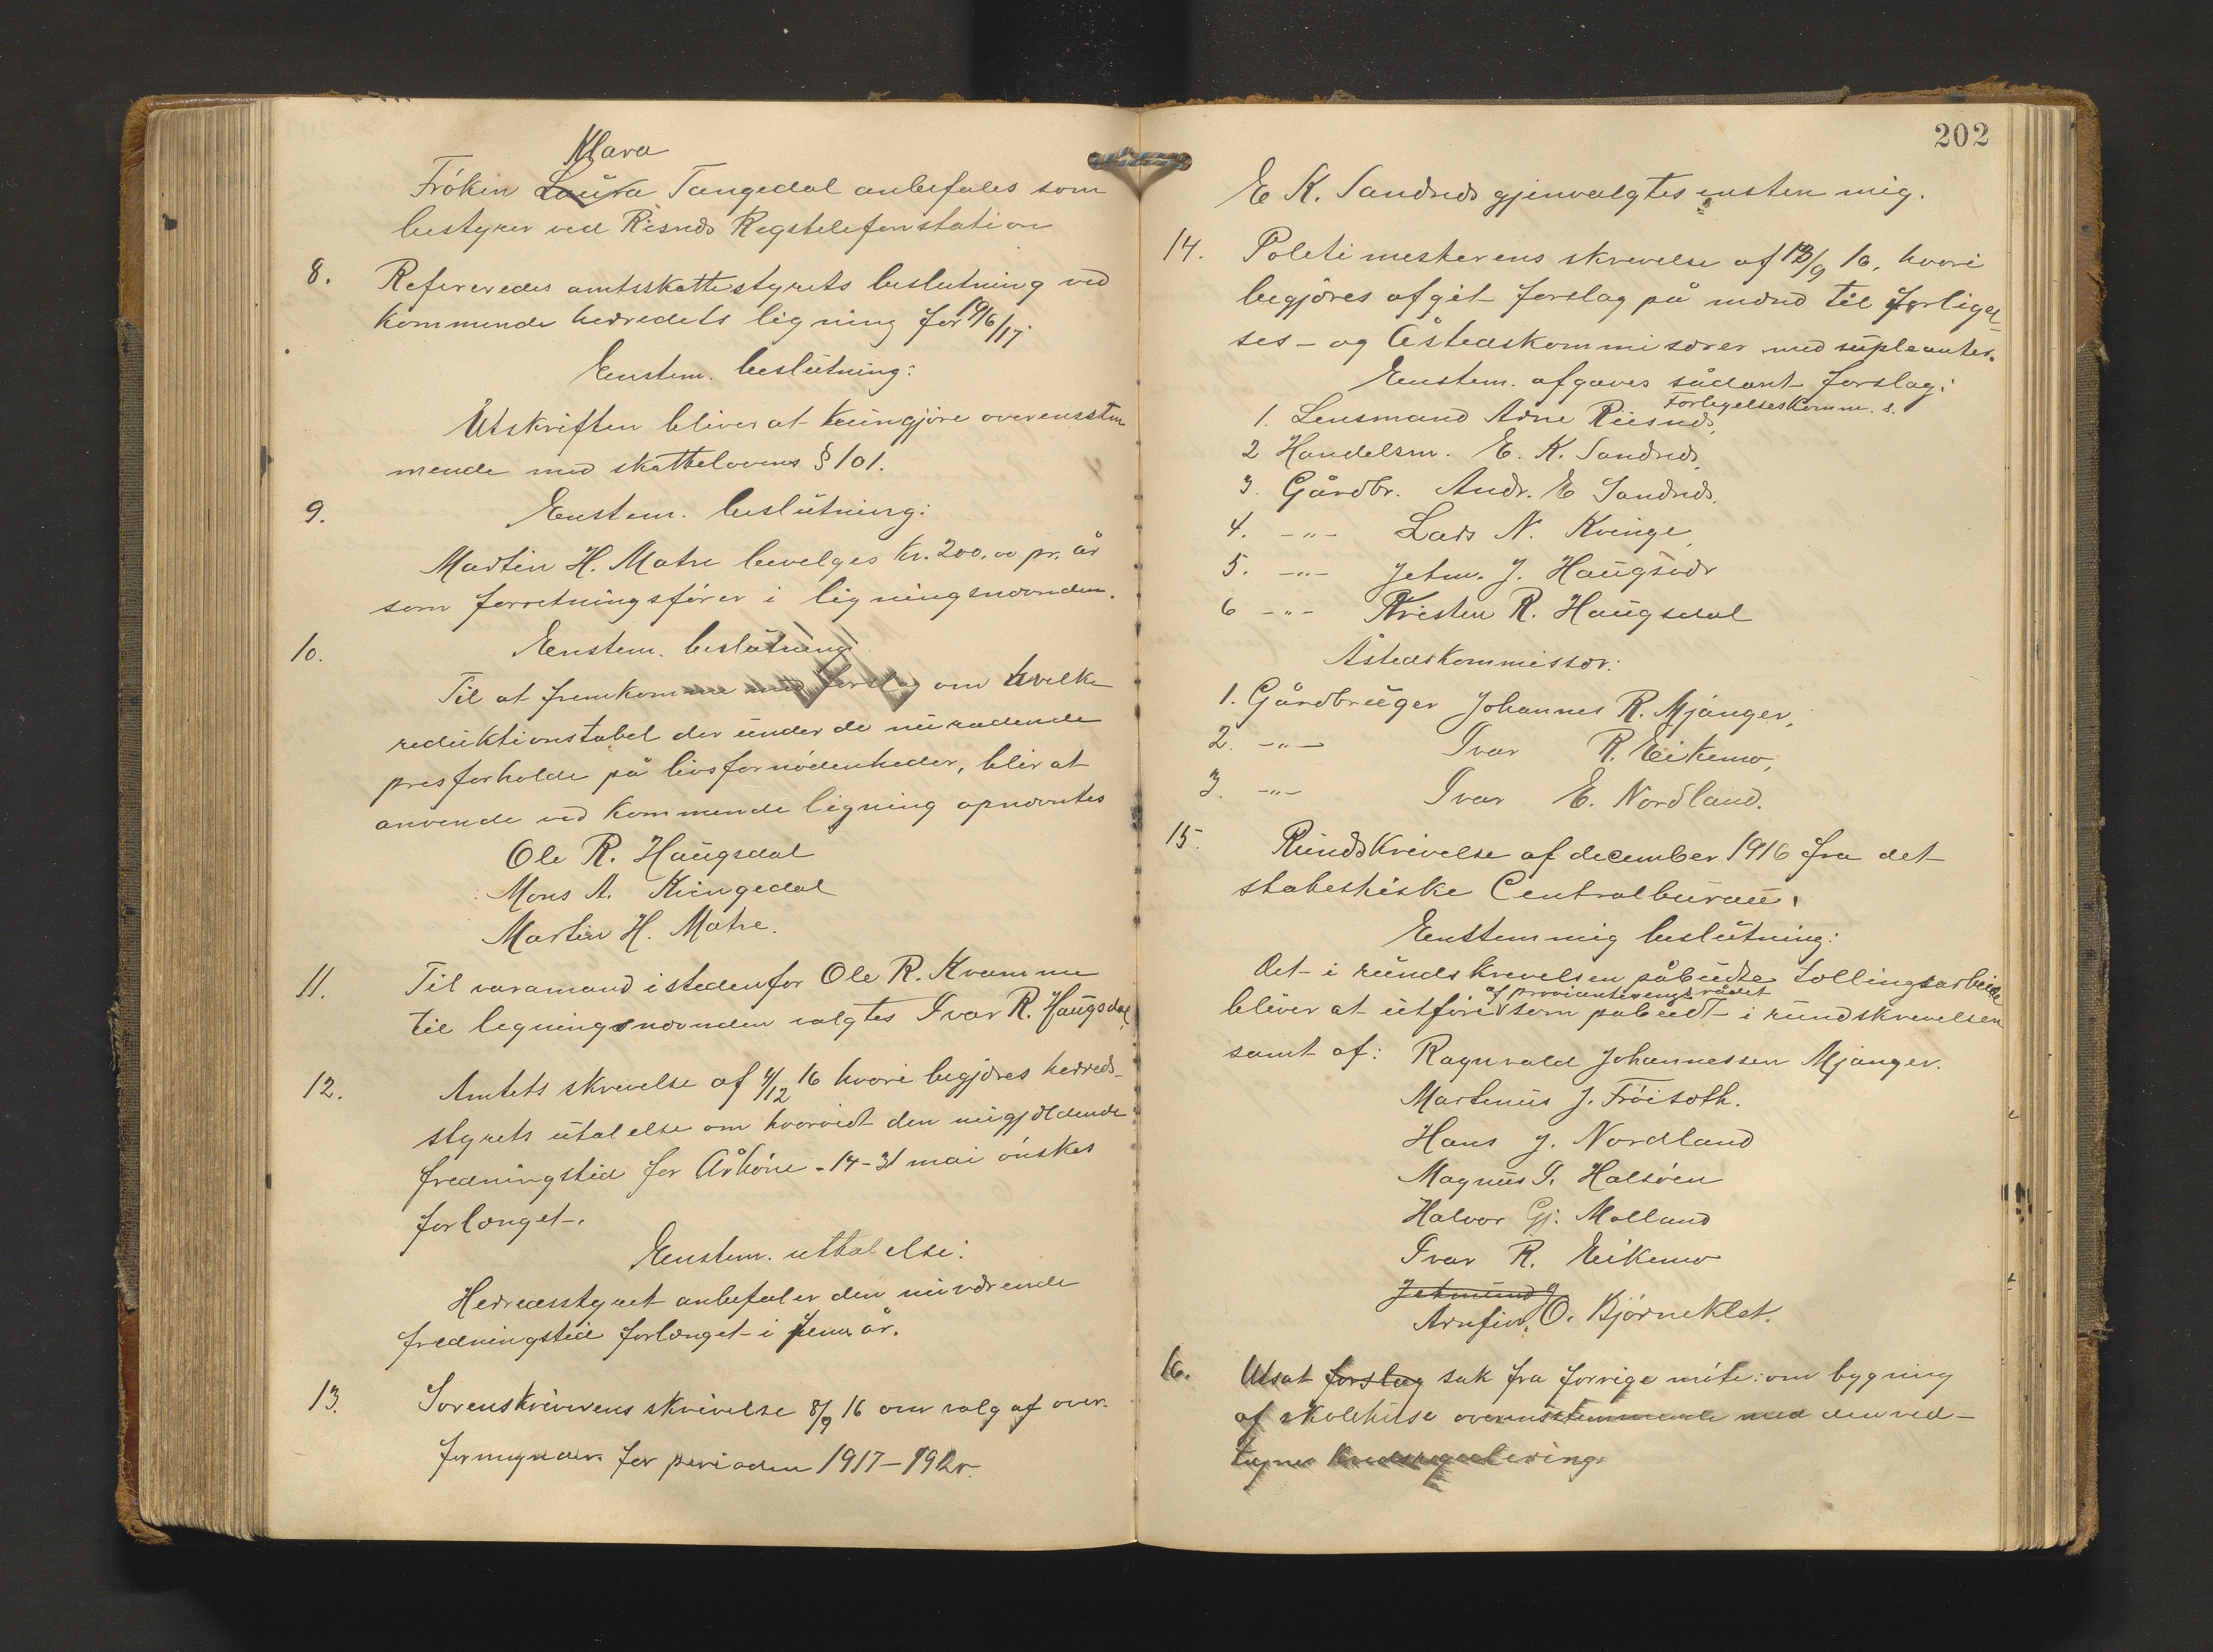 Klara
Frøken Laura Tangedal anbefales som
bestyrer ved Risnes Rigstelefonstation
8. Refereredes amtsskattestyrets beslutning ved
kommende herredets ligning for 1916/17.
Enstem. beslutning:
Utskriften bliver at kungjøre overensstem
mende med skattelovens § 101.
9. Enstem. beslutning:
Martin H. Matre bevelges kr. 200,00 pr. år
som forretningsfører i ligningsnævnden.
10. Enstem. beslutning
Til at fremkomme med forslag om hvilke
reduktionstabel der under de nu radende
presforholde på livsfornødenheder, blir at
anvende ved kommende ligning opnævntes
Ole R. Haugsdal
Mons A. Kringedal
Martin H. Matre.
11. Til varamand istedenfor Ole R. Kvamme
til legningsnævnden valgtes Ivar R. Haugsdal
12. Amtets skrivelse af 4/12 16 hvori begjæres herreds-
styrets utalelse om hvorvidt den nugjældende
fredningstid for Århøne - 14-31 mai ønskes
forlænget.
Enstem. uttalelse:
Herredsstyret anbefaler den nuværende
fredningstid forlænget i fem år.
13. Sorenskriverens skrivelse 8/9 16 om valg af over-
formynder for perioden 1917-1920.
202
E K. Sandnes gjenvalgtes ensten mig.
14. Politimesterens skrivelse af 13/9 16, hvori
begjæres afgit forslag på mænd til forligel
ses- og Åstedskommisærer med supleanter.
Enstem. afgaves sådant forslag:
Forlegelseskomm. s.
1. Lensmand Arne Riisnes,
2 Handelsm. E. K. Sandnes,
3. Gårdbr. Andr. E Sandnes,
4. -"- Lars N. Kvinge,
5. -"- Jetm. J. Haugsvær
6 -"- Kristen R. Haugsdal
Åstedskommissær:
1. Gårdbruger Johannes R. Mjanger,
2. -"- Ivar R. Eikemo,
3. -"- Ivar E. Nordland.
15. Rundskrivelse af december 1916 fra det
stabestiske Centralbureau.
Enstemmig beslutning:
Det i rundskrevelsen påbudte tællingsarbeide
af provianteringsrådet
bliver at utføre som påbudt i rundskrevelsen
samt af: Ragnvald Johannessen Mjanger.
Martinus J. Frøisæth.
Hans J. Nordland
Magnus I. Halsøen
Halvor Gj. Molland
Ivar R. Eikemo
Jetmund J
Arnfin O. Bjørneklet.
16. Utsat forslag sak fra forrige møte: om bygning
af skolehuse overensstemmende med den ved-
tagne kredsregulering.